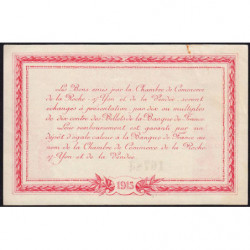 Les Bons émis par la Chambre de Commerce
de la Roche-s-Yon et de la Vendée seront
échangés à présentation par dix ou multiples
de dix contre des Billets de la Banque de France
Leur remboursement est garanti par un
dépôt d'égale valeur à la Banque de France au
nom de la Chambre de Commerce de la Roche
s-Yon et de la Vendée.
1915